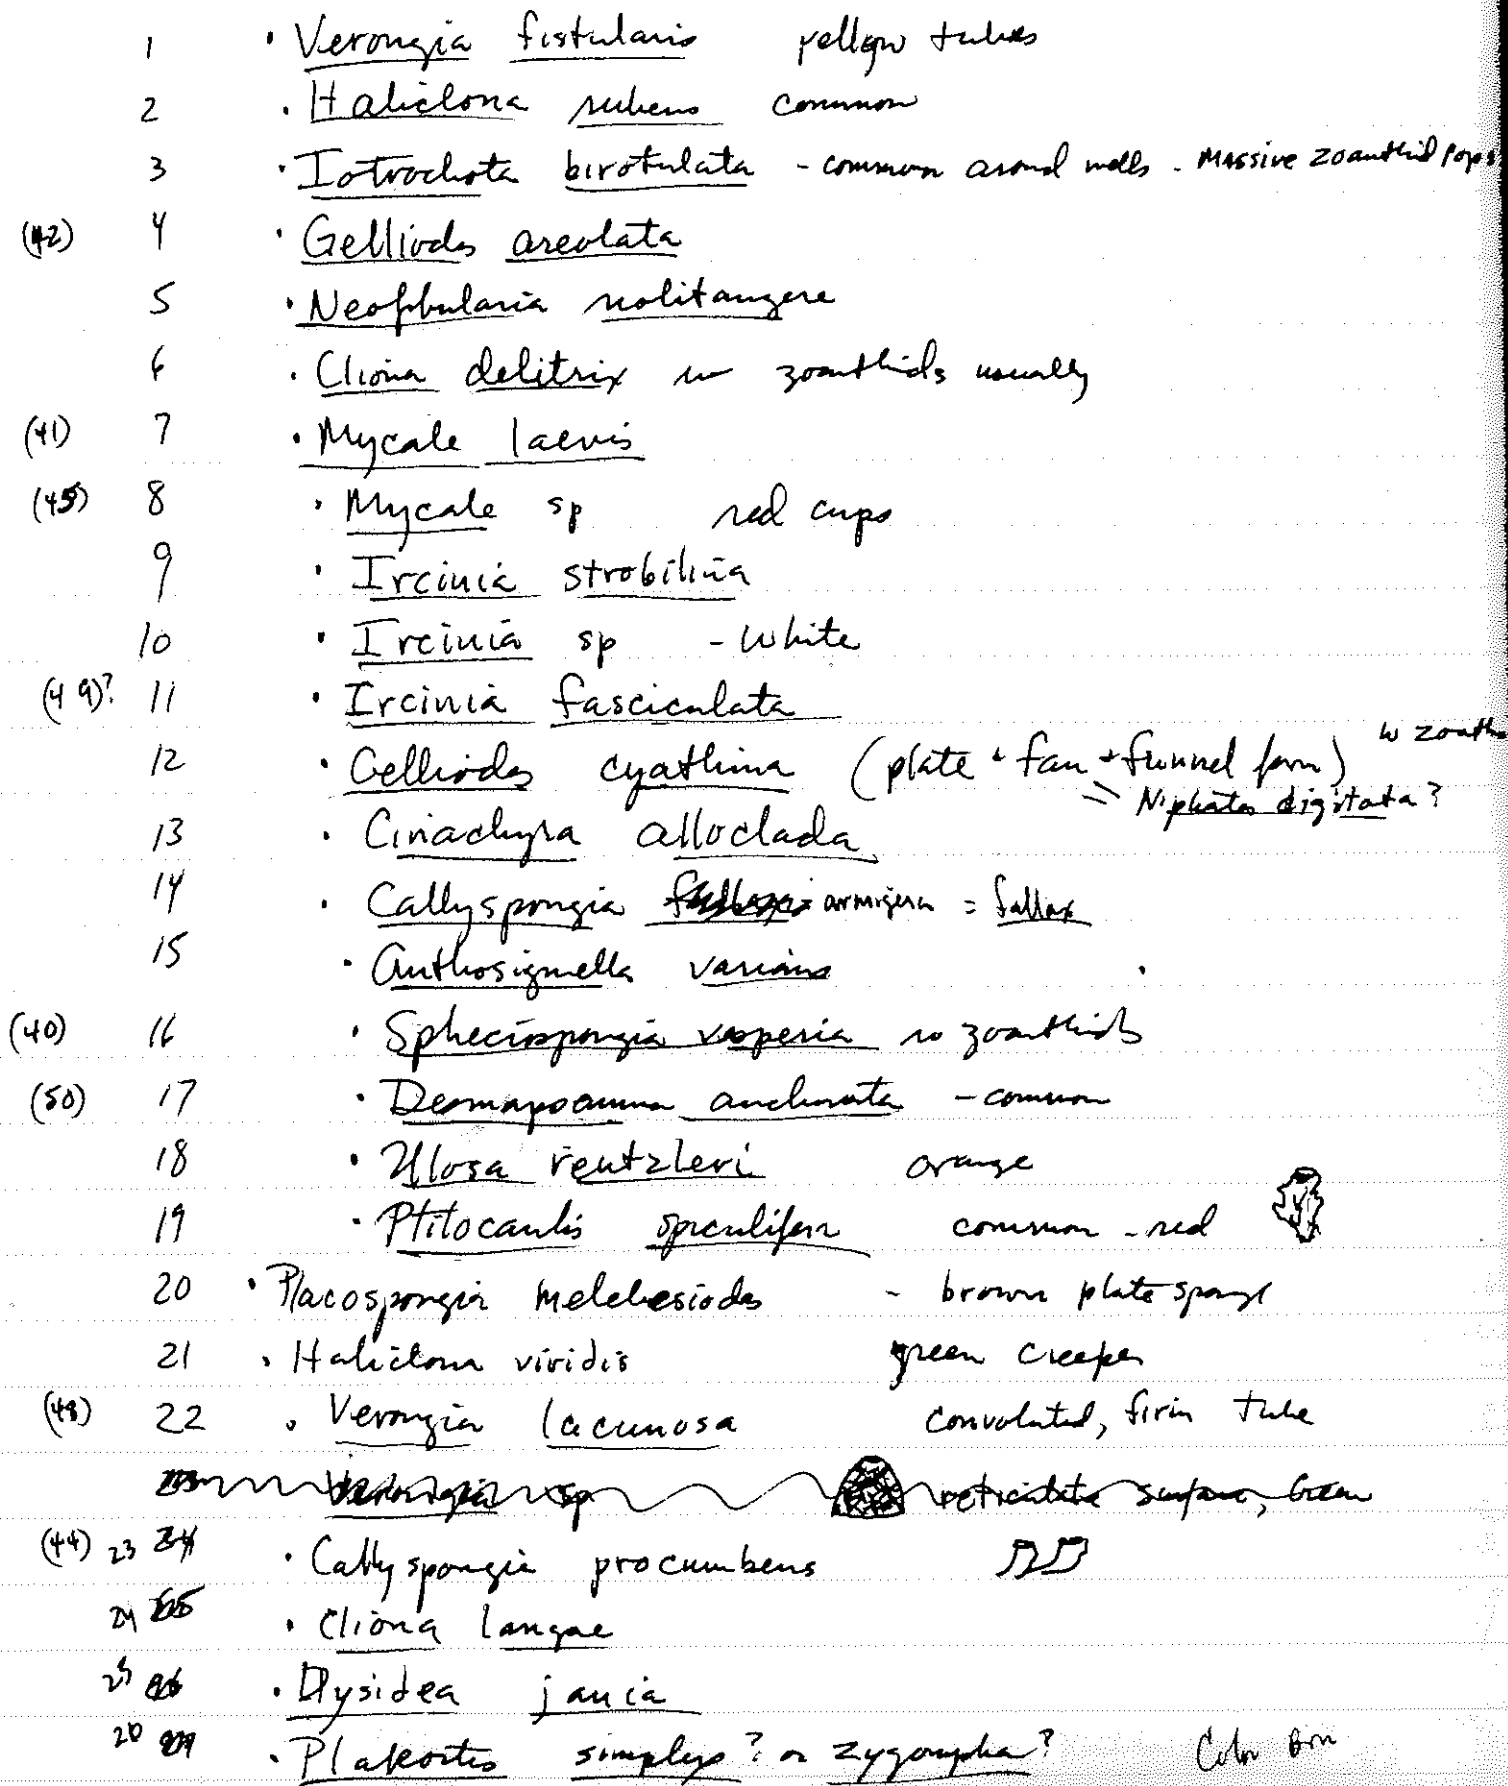 1 · Verongia fistularis yellow tubes
2 · Haliclona rubens common
3 · Iotrochota birotulata - common around wells - Massive zoanthid pops
(42) 4 · Gelliodes areolata
5 · Neofibularia nolitangere
6 · Cliona delitrix w zoanthids usually
(41) 7 · Mycale laevis
(45) 8 · Mycale sp red cups
9 · Ircinia strobilina
10 · Ircinia sp - White
(49)? 11 · Ircinia fasciculata
12 · Gelliodes cyathina (plate + fan + funnel form) w zoanth
= Niphates digitata?
13 · Cinachyra alloclada
14 · Callyspongia armigera = fallax
15 · Anthosigmella varians
(40) 16 · Spheciospongia vesparia no zoanthids
(50) 17 · Desmapsamma anchorata - common
18 · Ulosa reutzleri orange
19 · Ptilocaulis spiculifera common - red
20 · Placospongia melobesiodes - brown plate sponge
21 · Haliclona viridis green creeper
(48) 22 · Verongia lacunosa convoluted, firm tube
Verongia sp reticulate surface, Green
(44) 23 24 · Callyspongia procumbens
24 25 · Cliona langae
25 26 · Dysidea jania
26 27 · Plakortis simplex? or zygompha? Color Brn